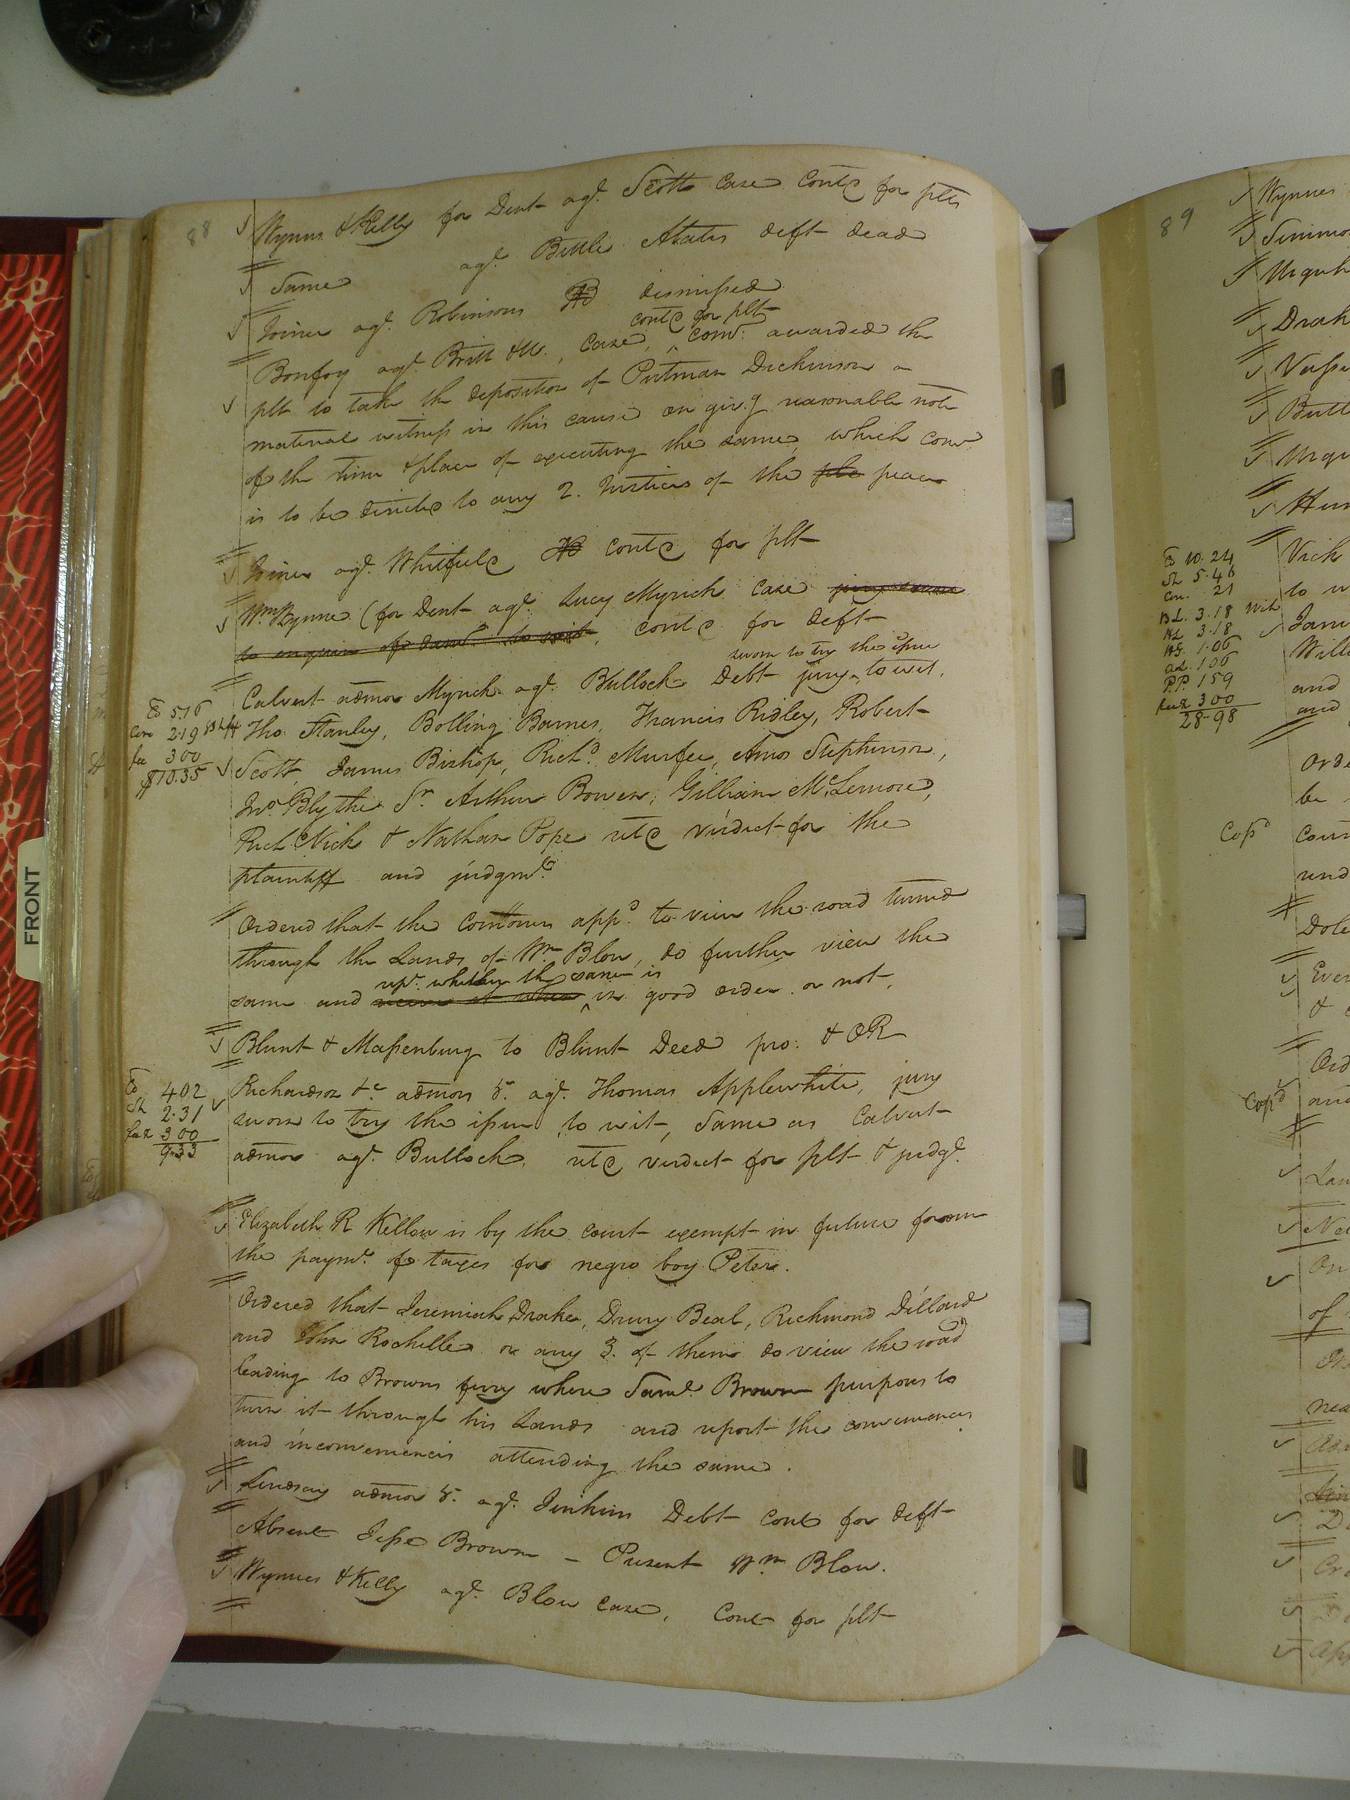 88
Wynns & Kelly for Dent agt. Scott Case Contd for plts
Same agt. Bittle Abates deft dead
Joiner agt. Robinsons dismissed
contd for plt
Bonfoy agt. Britt &c., Case, ^ comn. awarded the
plt to take the deposition of Putman Dickinson a
material witness in this cause on giv.g reasonable note
of the time & place of executing the same, which comn
is to be directed to any 2. Justices of the ple peace
Joiner agt. Whitfield contd for plt
Wm Wynne (for Dent agt. Lucy Myrick Case jury sworn
to enquire of dam.s to wit, contd for deft
sworn to try the issue
Calvert admor Myrick agt. Bullock Debt jury ^ to wit,
Tho. Stanley, Bolling Barnes, Francis Ridley, Robert
Scott, James Bishop, Richd. Murfee, Amos Stephenson,
Jno. Blythe Sr. Arthur Bowen, Gilliam McLemore,
Richd. Vick & Nathan Pope retd verdict for the
plaintiff and judgmt.
5.16
2.19
fee 300
$10.35
Ordered that the Commrs appd. to view the road turned
through the Lands of Wm Blow, do further view the
rept. whether the same is
same and ^ in good order or not.
Blunt & Massenburg to Blunt Deed pro: & OR
Richardson &c admors &. agt. Thomas Applewhite, jury
sworn to try the issue, to wit, Same as Calvert
admor agt. Bullock, retd verdict for plt & judgt.
402
2.31
300
9.33
Elizabeth R Kellow is by the court exempt in future from
the paymt. of taxes for negro boy Peter.
Ordered that Jeremiah Drake, Drury Beal, Richmond Dillard
and John Rochelle or any 3. of them do view the road
leading to Browns ferry where Saml. Brown purposes to
turn it through his Lands and report the conveniences
and inconveniencies attending the same.
Lindsay admor &. agt. Jenkins Debt contd for deft
Absent Jesse Brown – Present Wm Blow.
Wynnes & Kelly agt. Blow Case, Contd for plt
FRONT
89
Wynnes
Drak
10.24
5.46
21
3.18
3.18
1.06
106
P.P. 159
300
28.98
Vick
Will
and
and
be